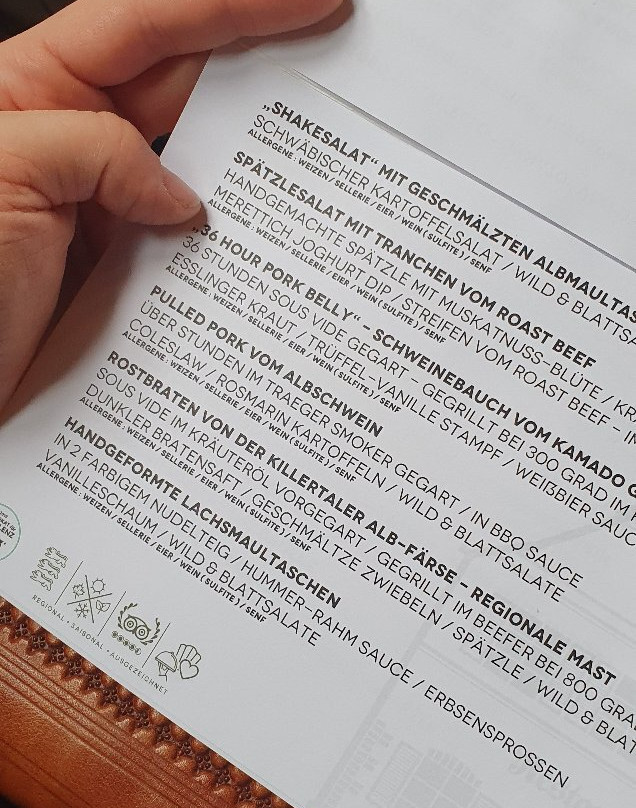 „SHAKESALAT“ MIT GESCHMÄLZTEN ALBMAULTAS
SCHWÄBISCHER KARTOFFELSALAT / WILD & BLATTSA
ALLERGENE: WEIZEN / SELLERIE / EIER / WEIN (SULFITE) / SENF
SPÄTZLESALAT MIT TRANCHEN VOM ROAST BEEF
HANDGEMACHTE SPÄTZLE MIT MUSKATNUSS-BLÜTE / KRÄ
MERETTICH JOGHURT DIP / STREIFEN VOM ROAST BEEF - IN
ALLERGENE: WEIZEN / SELLERIE / EIER / WEIN (SULFITE) / SENF
„36 HOUR PORK BELLY“ - SCHWEINEBAUCH VOM KAMADO G
36 STUNDEN SOUS VIDE GEGART - GEGRILLT BEI 300 GRAD IM
ESSLINGER KRAUT / TRÜFFEL-VANILLE STAMPF / WEIẞBIER SAUC
ALLERGENE: WEIZEN / SELLERIE / EIER / WEIN (SULFITE) / SENF
PULLED PORK VOM ALBSCHWEIN
ÜBER STUNDEN IM TRAEGER SMOKER GEGART / IN BBQ SAUCE
COLESLAW / ROSMARIN KARTOFFELN / WILD & BLATTSALATE
ALLERGENE: WEIZEN / SELLERIE / EIER / WEIN (SULFITE) / SENF
ROSTBRATEN VON DER KILLERTALER ALB-FÄRSE - REGIONALE MAST
SOUS VIDE IM KRÄUTERÖL VORGEGART / GEGRILLT IM BEEFER BEI 800 GRA
DUNKLER BRATENSAFT / GESCHMÄLTZE ZWIEBELN / SPÄTZLE / WILD & BLAT
ALLERGENE: WEIZEN / SELLERIE / EIER / WEIN (SULFITE) / SENF
HANDGEFORMTE LACHSMAULTASCHEN
IN 2 FARBIGEM NUDELTEIG / HUMMER-RAHM SAUCE / ERBSENSPROSSEN
VANILLESCHAUM / WILD & BLATTSALATE
ALLERGENE: WEIZEN / SELLERIE / EIER / WEIN (SULFITE) / SENF
REGIONAL • SAISONAL • AUSGEZEICHNET